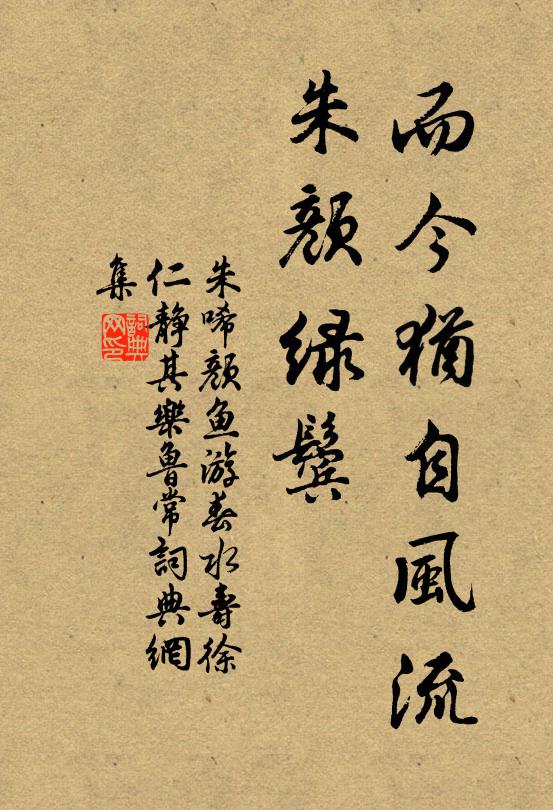 而今猶自風流
朱顏綠鬢
朱唏顏魚游春水壽徐
仁靜其樂魯常詞典網
集
詞典
网印